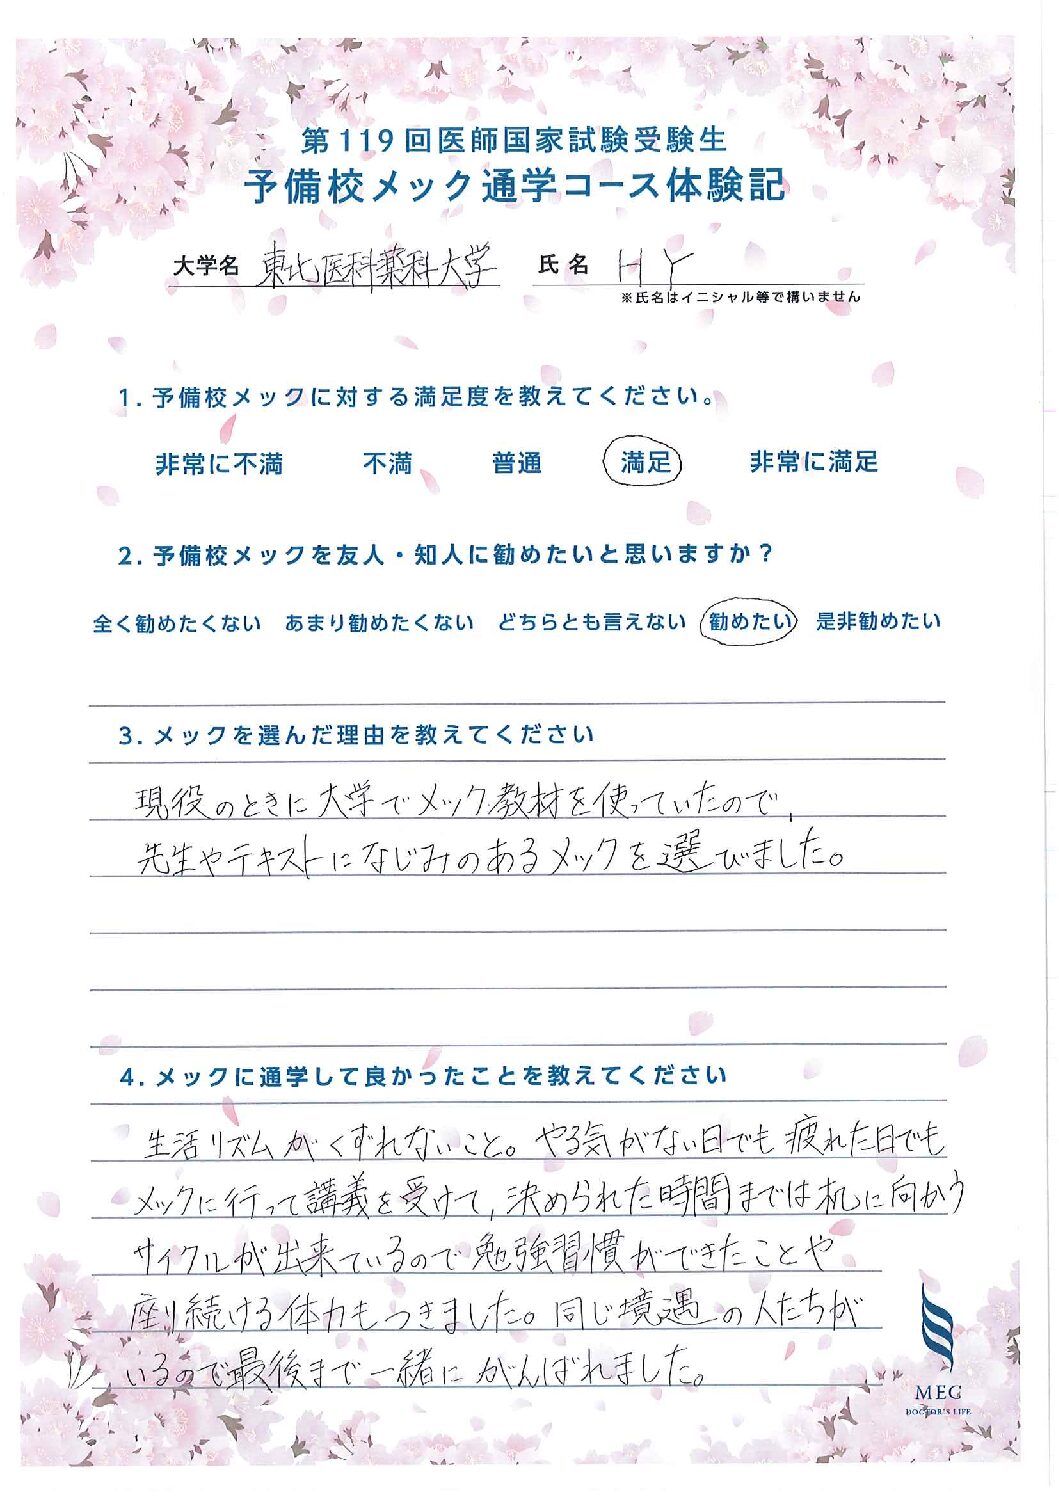 第119回医師国家試験受験生
予備校メック通学コース体験記
大学名 東北医科薬科大学 氏名 H Y
※氏名はイニシャル等で構いません
1. 予備校メックに対する満足度を教えてください。
非常に不満 不満 普通 満足 非常に満足
2. 予備校メックを友人・知人に勧めたいと思いますか？
全く勧めたくない あまり勧めたくない どちらとも言えない 勧めたい 是非勧めたい
3. メックを選んだ理由を教えてください
現役のときに大学でメック教材を使っていたので、
先生やテキストになじみのあるメックを選びました。
4. メックに通学して良かったことを教えてください
生活リズムがくずれないこと。やる気がない日でも疲れた日でも
メックに行って講義を受けて、決められた時間までは机に向かう
サイクルが出来ているので勉強習慣ができたことや
座り続ける体力もつきました。同じ境遇の人たちが
いるので最後まで一緒にがんばれました。
MEC
DOCTOR'S LIFE